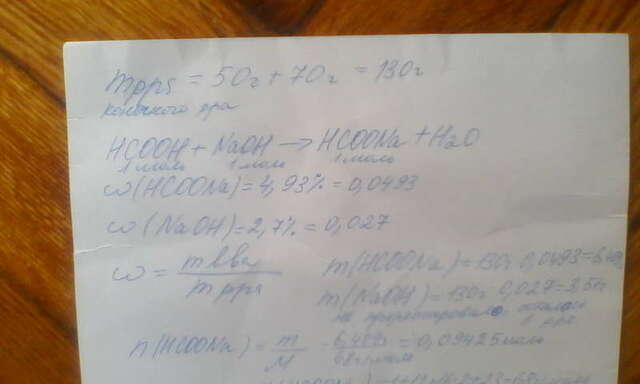 mрра = 50г + 70г = 130г
конечного рра
HCOOH + NaOH → HCOONa + H2O
1 моль 1 моль 1 моль
ω(HCOONa) = 4,93% = 0,0493
ω(NaOH) = 2,7% = 0,027
ω = mвва / mрра
m(HCOONa) = 130г 0,0493 =
m(NaOH) = 130г 0,027 = 3,5г
не прореагировало, осталось
в рре
n(HCOONa) = m/M = 6,409г / 68г/моль = 0,09425 моль